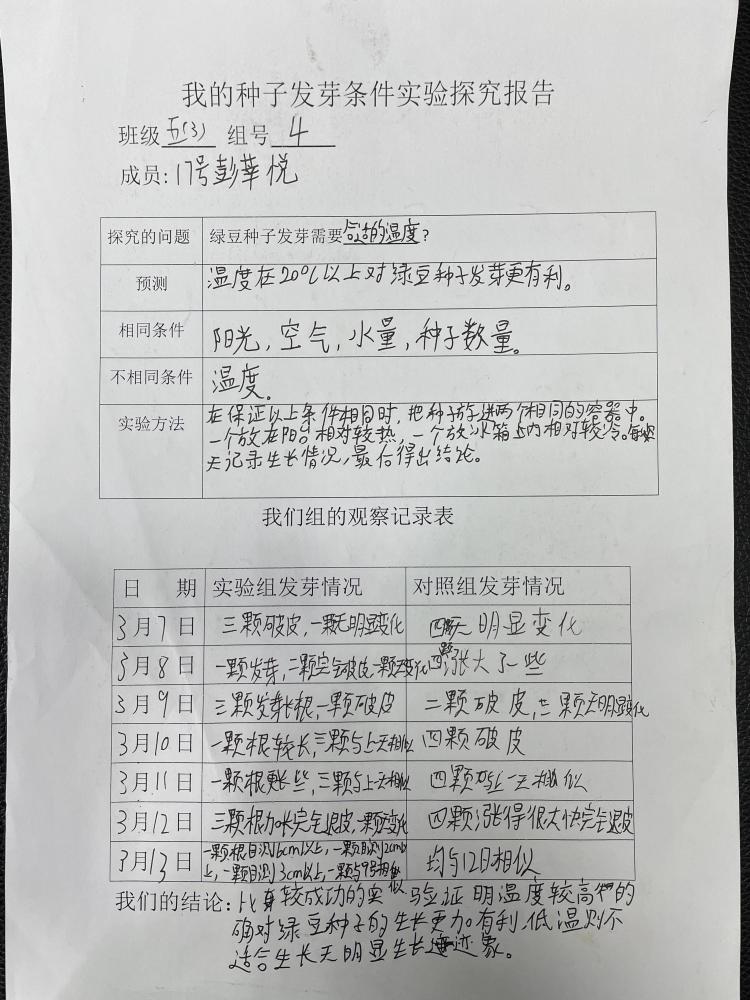 我的种子发芽条件实验探究报告
班级 五(3) 组号 4
成员: 17号彭莘悦
探究的问题 绿豆种子发芽需要合适的温度?
预测 温度在20℃以上对绿豆种子发芽更有利。
相同条件 阳光,空气,水量,种子数量。
不相同条件 温度。
实验方法 在保证以上条件相同时,把种子放进两个相同的容器中。
一个放在阳台相对较热,一个放冰箱内相对较冷。每
天记录生长情况,最后得出结论。
我们组的观察记录表
日 期 实验组发芽情况 对照组发芽情况
3月7日 三颗破皮,一颗无明显变化 四颗无明显变化
3月8日 一颗发芽,二颗完全破皮,一颗无变化 四颗涨大了一些
3月9日 三颗发芽长根,一颗破皮 二颗破皮,二颗无明显变化
3月10日 一颗根较长,三颗与上天相似 四颗破皮
3月11日 一颗根更长些,三颗与上天相似 四颗与上天相似
3月12日 三颗根加长完全退皮,一颗无变化 四颗涨得很大快完全退皮
3月13日 一颗根目测16cm以上,一颗目测12cm以
上,一颗目测13cm以上,一颗与9号相似 均与12日相似
我们的结论: 比较成功的实验证明温度较高的
确对绿豆种子的生长更加有利,低温则不
适合生长无明显生长迹象。